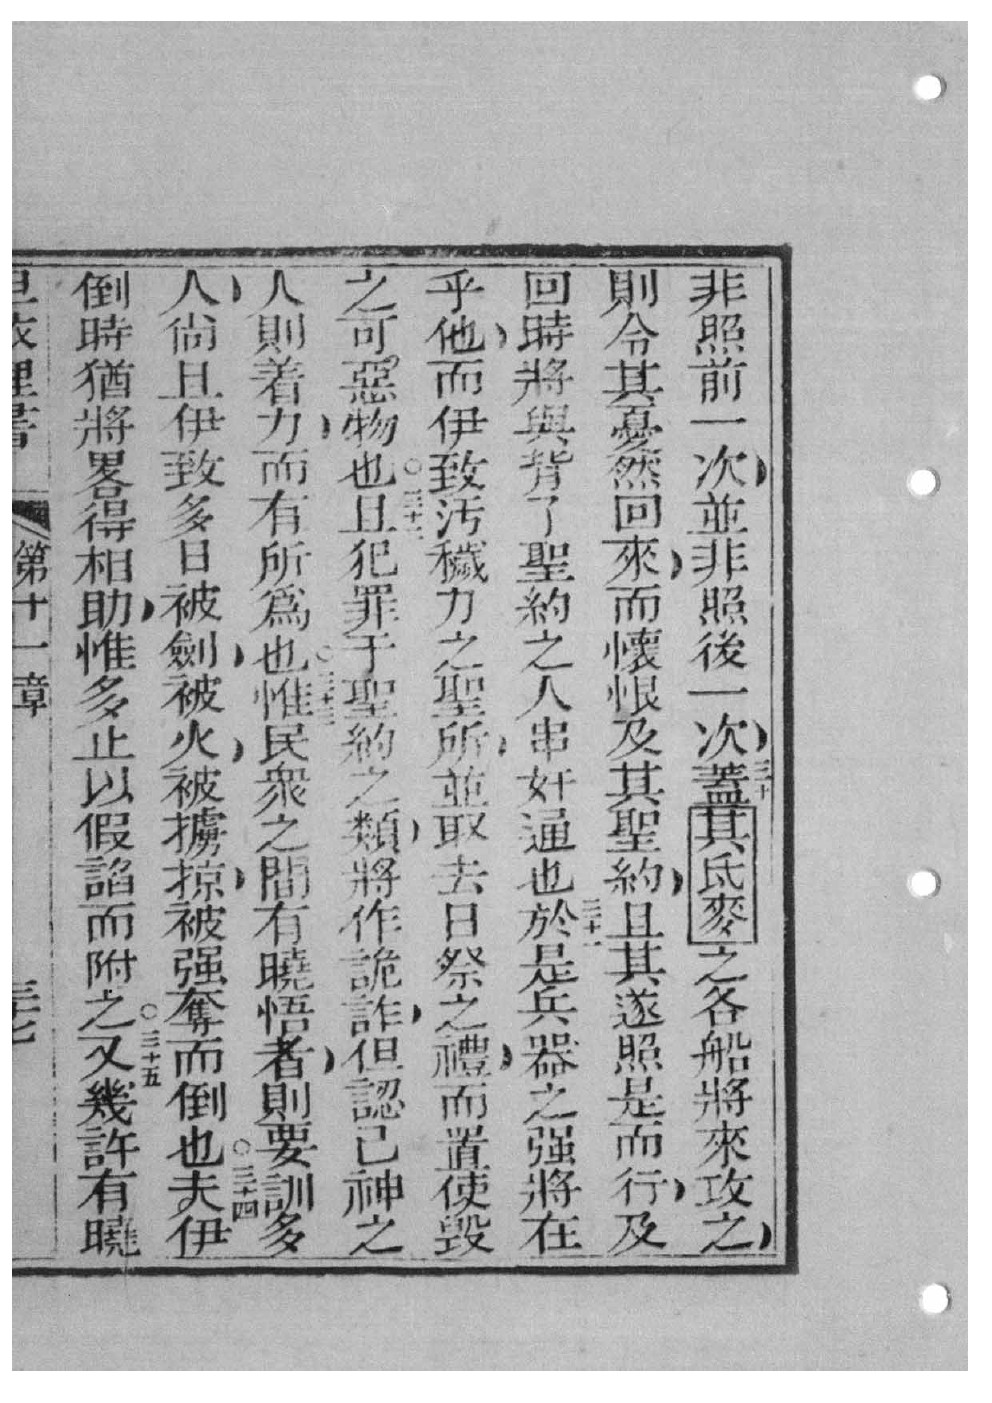 非照前一次並非照後一次三十蓋其氐麥之各船將來攻之
則令其憂然回來而懷恨及其聖約且其遂照是而行及
回時將與背了聖約之人串奸通也三十一於是兵器之强將在
乎他而伊致汚穢力之聖所並取去日祭之禮而置使毀
之可惡物也○三十二且犯罪于聖約之類將作詭詐但認己神之
人則着力而有所爲也○三十三惟民衆之間有曉悟者則要訓多
人尙且伊致多日被劍被火被擄掠被强奪而倒也○三十四夫伊
倒時猶將畧得相助惟多止以假諂而附之○三十五又幾許有曉
但依理書 第十一章 三十七